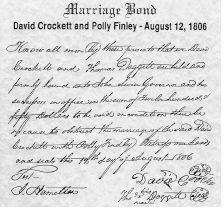 Marriage Bond
David Crockett and Polly Finley - August 12, 1806
Know all men by these presents that we David
Crockett and Thomas Doggett are held and
firmly bound unto John Sevier Governor and his
successors in office in the sum of twelve hundred &
fifty dollars to be void on condition there be
no cause to obstruct the marriage of the said David
Crockett with Polly Findley Witness our hands
and seals this 12th day of August 1806
Test
J. Hamilton
David Crockett
Thos Doggett